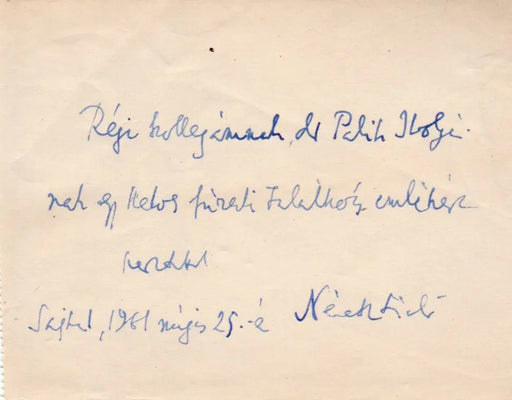 Régi kollegámnak, dr Palik Ibolyá-
nak egy kedves füredi találkozás emlékére
szeretettel
1961 május 25.-é Németh László